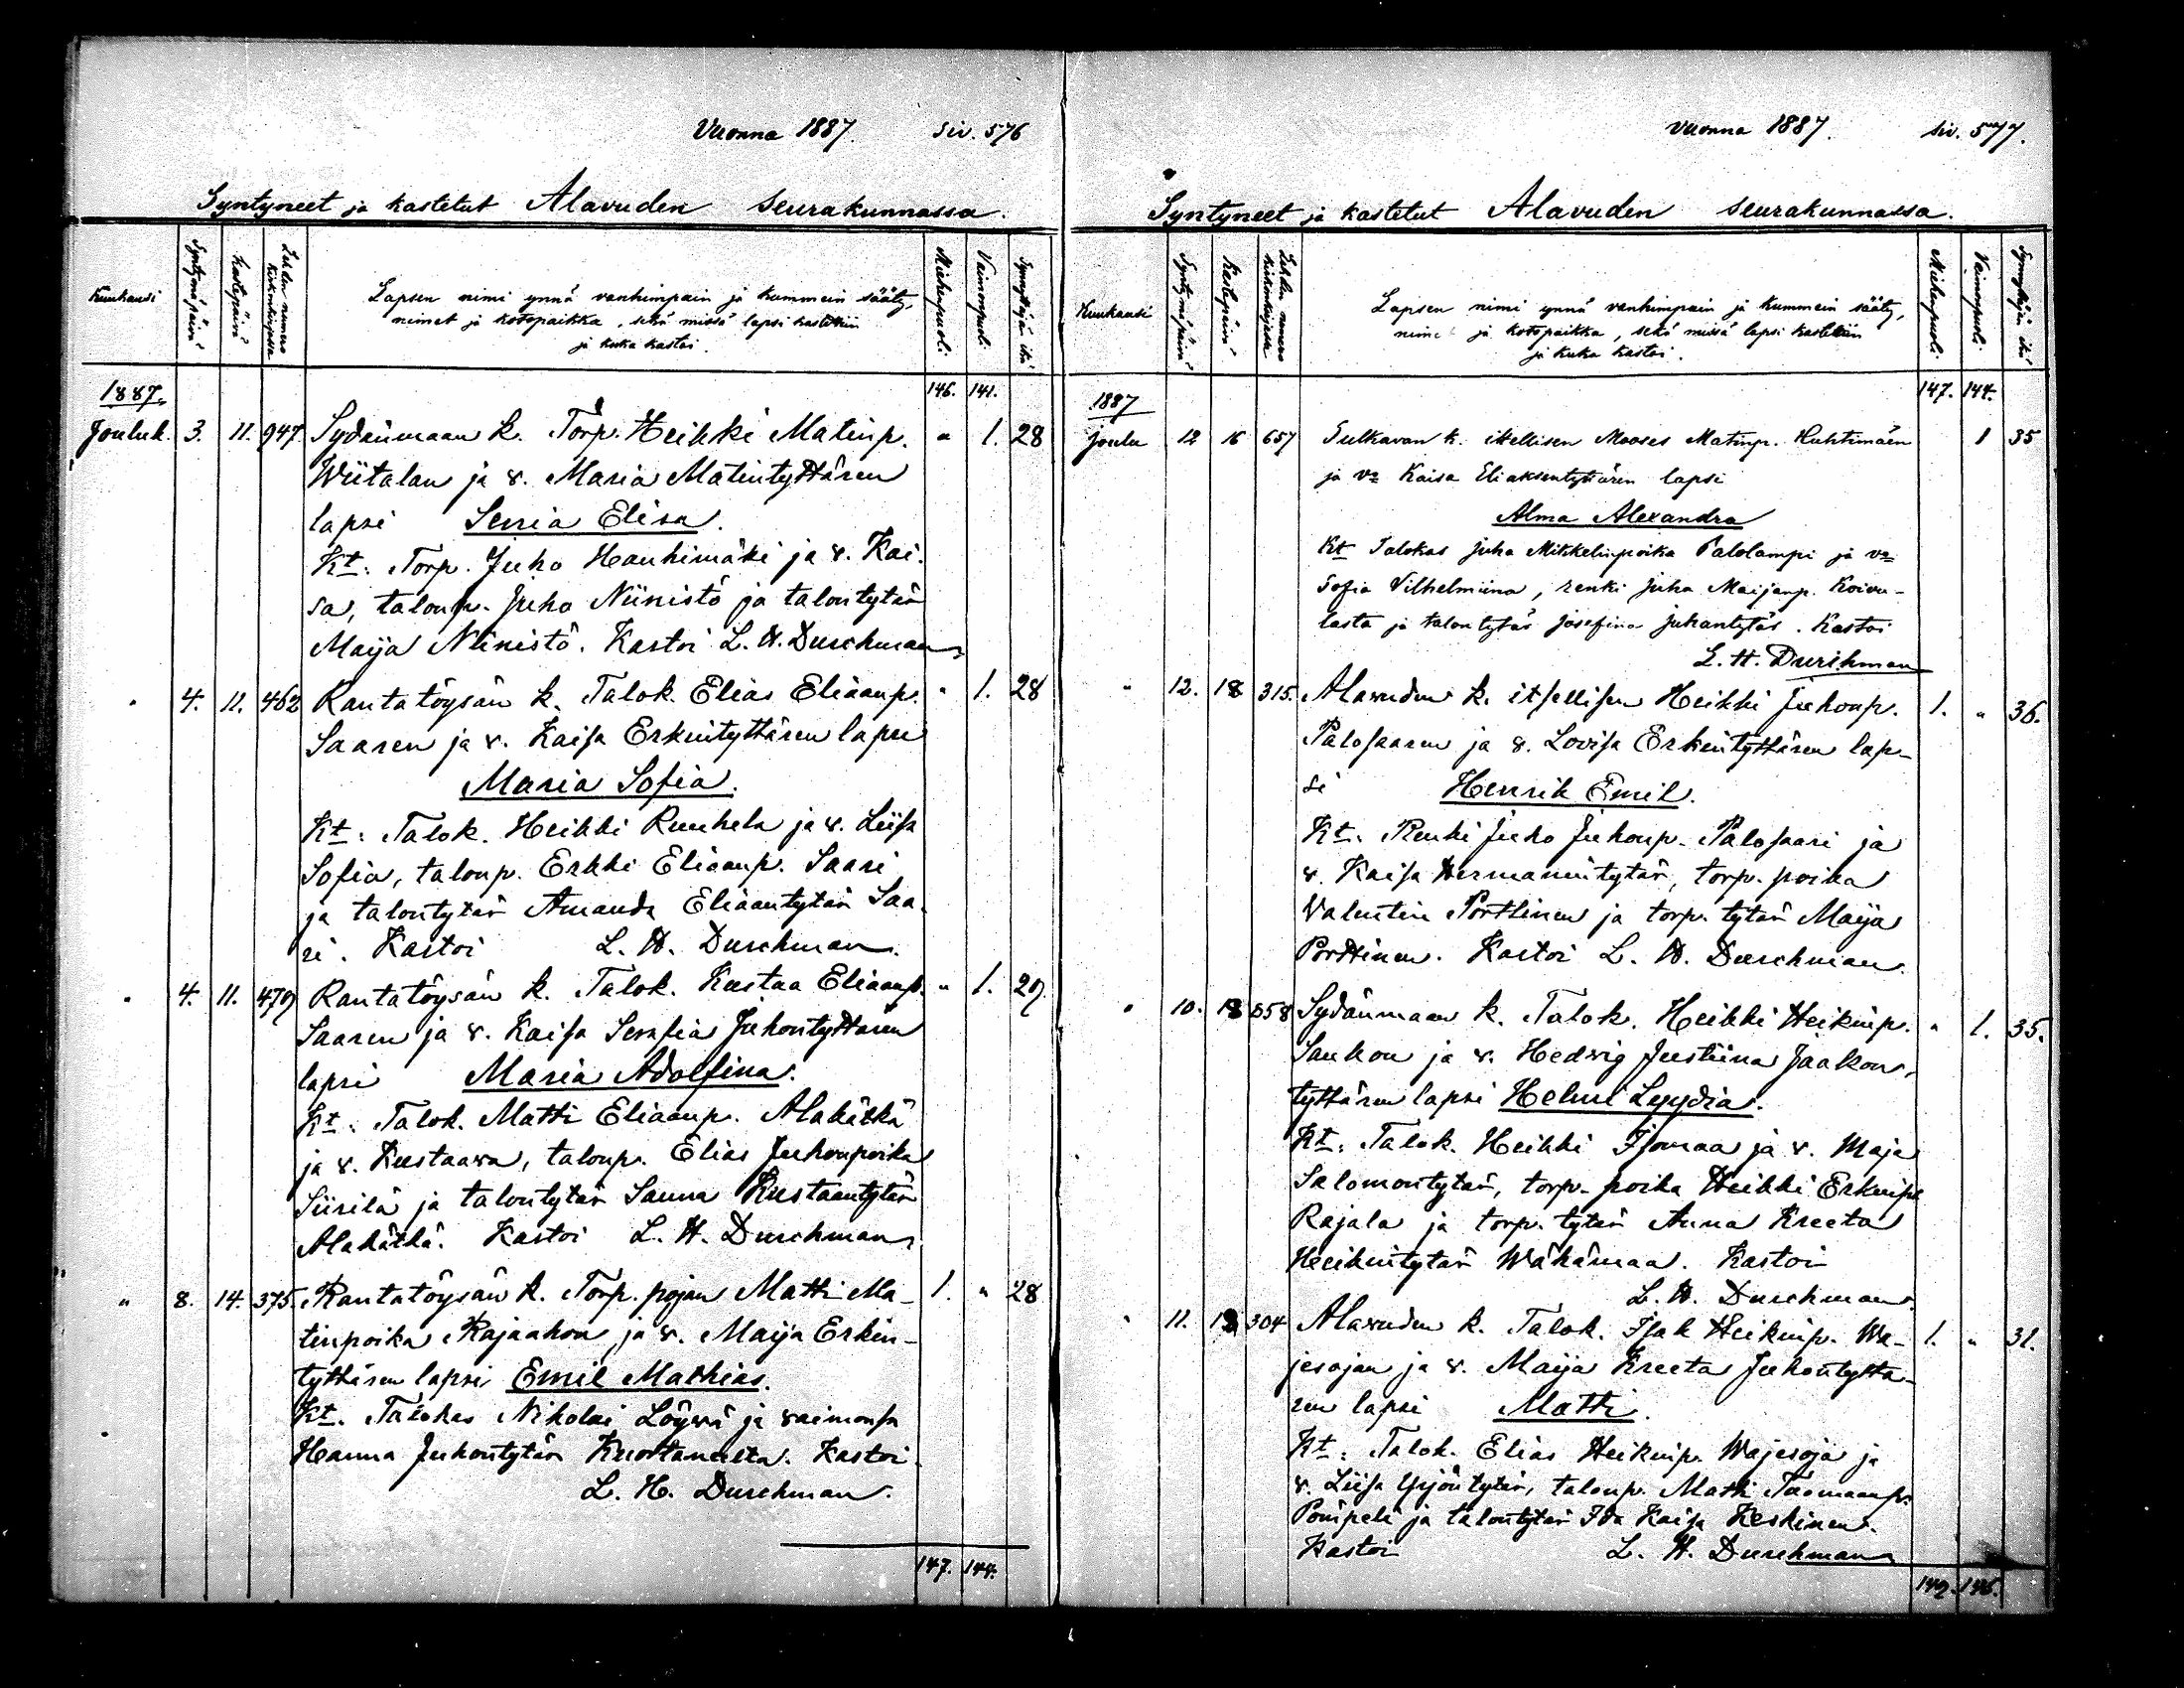 Vuonna 1887. Siv. 576
Syntyneet ja kastetut Alavuden seurakunnassa.
Kuukausi
Syntymäpäivä
Kastepäivä
Lehden numero kirkonkirjassa
Lapsen nimi ynnä vanhimpain ja kummein sääty,
nimet ja kotopaikka, sekä missä lapsi kastettiin
ja kuka kastoi.
Miehenpuoli
Vaimonpuoli
Synnyttäjän ikä
1887. 146. 141.
Jouluk. 3. 11. 947. Sydänmaan k. Torp. Heikki Matinp. " 1. 28
Wiitalan ja v. Maria Matintyttären
lapsi Senia Elisa.
Kt: Torp. Juho Hanhimäki ja v. Kai-
sa, talonp. Juho Niinistö ja talontytär
Maija Niinistö. Kastoi L. H. Durchman
" 4. 11. 462 Rantatöysän k. Talok. Elias Eliaanp. " 1. 28
Saaren ja v. Kaisa Erkintyttären lapsi
Maria Sofia.
Kt: Talok. Heikki Ruuhela ja v. Liisa
Sofia, talonp. Erkki Eliaanp. Saari
ja talontytär Amanda Eliaantytär Saa-
ri. Kastoi L. H. Durchman.
" 4. 11. 479 Rantatöysän k. Talok. Kustaa Eliaanp. " 1. 29
Saaren ja v. Kaisa Serafia Juhontyttären
lapsi Maria Adolfina.
Kt: Talok. Matti Eliaanp. Alakätkä
ja v. Kustaawa, talonp. Elias Juhonpoika
Siirilä ja talontytär Sanna Kustaantytär
Alakätkä. Kastoi L. H. Durchman.
" 8. 14. 375. Rantatöysän k. Torp. pojan Matti Ma- 1. " 28
tinpoika Rajaahon ja v. Maija Erkin-
tyttären lapsi Emil Mathias.
Kt. Talokas Nikolai Löywä ja vaimonsa
Hanna Juhontytär Kuortaneelta. Kastoi
L. H. Durchman.
147. 144.
vuonna 1887. siv. 577.
Syntyneet ja kastetut Alavuden seurakunnassa.
Kuukausi
Syntymäpäivä
Kastepäivä
Lehden numero kirkonkirjassa
Lapsen nimi ynnä vanhimpain ja kummein sääty,
nimet ja kotopaikka, sekä missä lapsi kastettiin
ja kuka kastoi.
Miehenpuoli
Vaimonpuoli
Synnyttäjän ikä
1887 147. 144.
Joulu 12 16 657 Sulkavan k. itsellisen Mooses Matinp. Huhtimäen 1 35
ja va Kaisa Eliaksentyttären lapsi
Alma Alexandra
Kt Talokas Juha Mikkelinpoika Palolampi ja va
Sofia Vilhelmiina, renki Juha Maijanp. Koivu-
lasta ja talontytär Josefina Juhantytär. Kastoi
L. H. Durchman
" 12. 18 315. Alavuden k. itsellisen Heikki Juhonp. 1. " 36.
Palosaaren ja v. Lovisa Erkintyttären lap-
si Henrik Emil.
Kt: Renki Juho Juhonp. Palosaari ja
v. Kaisa Hermannintytär, torp. poika
Valentin Porttinen ja torp. tytär Maija
Porttinen. Kastoi L. H. Durchman.
" 10. 18 658 Sydänmaan k. Talok. Heikki Heikinp. " 1. 35.
Saukon ja v. Hedwig Justiina Jaakon-
tyttären lapsi Helmi Lyydia.
Kt: Talok. Heikki Isomaa ja v. Maja
Salomontytär, torp. poika Heikki Erkinp.
Rajala ja torp. tytär Anna Kreeta
Heikintytär Wähämaa. Kastoi
L. H. Durchman.
" 11. 304 Alavuden k. Talok. Isak Heikinp. Wa- 1. " 31.
jesojan ja v. Maija Kreeta Juhontyttä-
ren lapsi Matti.
Kt: Talok. Elias Heikinp. Wajesoja ja
v. Liisa Yrjöntytär, talonp. Matti Tuomaanp.
Pömpeli ja talontytär Ida Kaisa Keskinen.
Kastoi L. H. Durchman
149. 145.